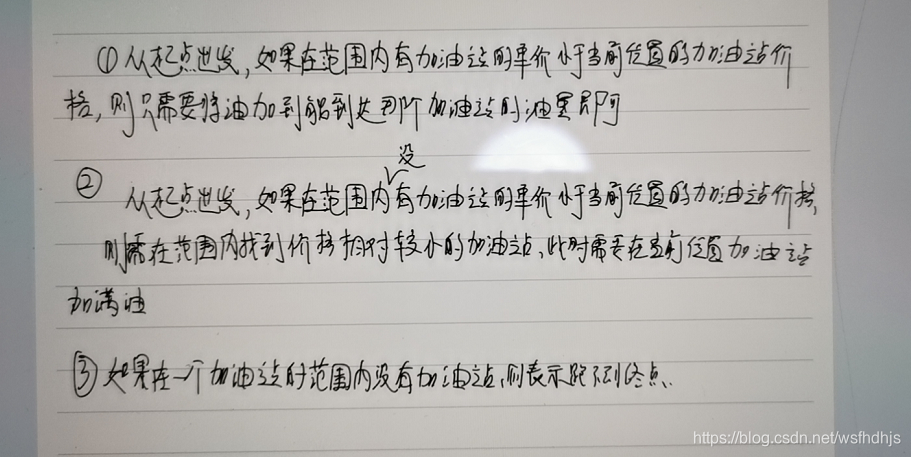 ①从起点出发,如果在范围内有加油站的单价小于当前位置的加油站价
格,则只需要将油加到能到达那个加油站的油量即可
没
② 从起点出发,如果在范围内有加油站的单价小于当前位置的加油站价格,
则需在范围内找到价格相对较小的加油站,此时需要在当前位置加油站
加满油
③如果在一个加油站的范围内没有加油站,则表示跑不到终点.
https://blog.csdn.net/wsfhdhjs